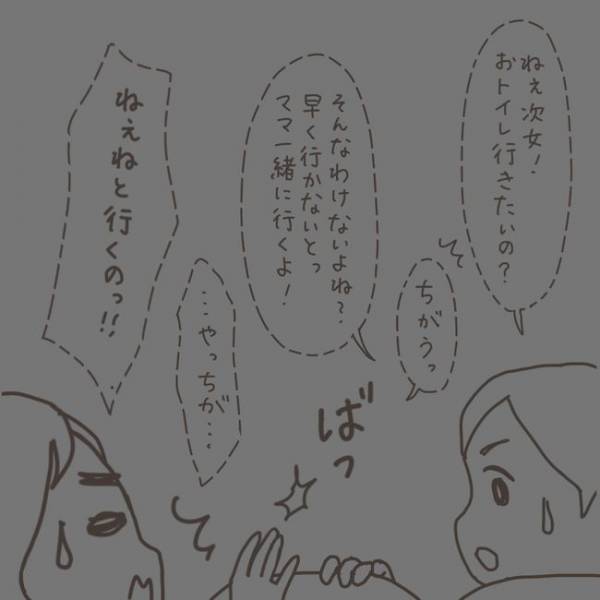 ねぇ次女！
おトイレ行きたいの？
ちがうっ
そんなわけないよね？
早く行かないとっ
ママ一緒に行くよ！
ばっ
…やっちが…
ねぇねと行くのっ!!